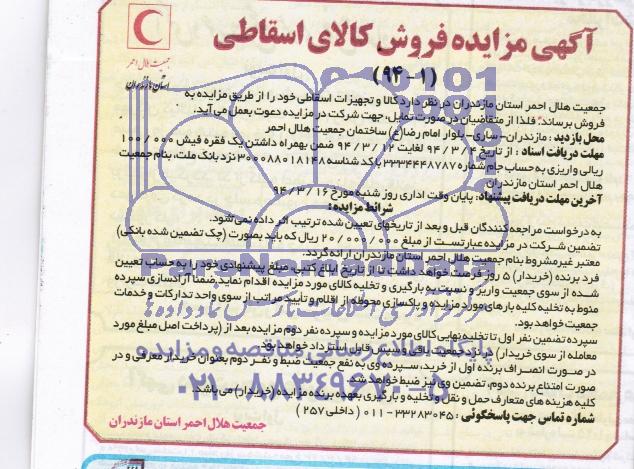 آگهی مزایده فروش کالای اسقاطی
(۹۴-۱)
جمعیت هلال احمر
استان مازندران
جمعیت هلال احمر استان مازندران در نظر دارد کالا و تجهیزات اسقاطی خود را از طریق مزایده به
فروش برساند، فلذا از متقاضیان در صورت تمایل، جهت شرکت در مزایده دعوت بعمل می آید.
محل بازدید : مازندران- ساری- بلوار امام رضا(ع) ساختمان جمعیت هلال احمر
مهلت دریافت اسناد : از تاریخ ۹۴/۳/۴ لغایت ۹۴/۳/۱۲ ضمن بهمراه داشتن یک فقره فیش ۱۰۰/۰۰۰
ریالی واریزی به حساب جام شماره ۳۳۳۴۴۴۸۷۸۷ با کد شناسه ۳۰۰۰۸۸۰۱۸۱۴۸ نزد بانک ملت، بنام جمعیت
هلال احمر استان مازندران
آخرین مهلت دریافت پیشنهاد: پایان وقت اداری روز شنبه مورخ ۹۴/۳/۱۶
شرائط مزایده :
به درخواست مراجعه کنندگان قبل و بعد از تاریخهای تعیین شده ترتیب اثر داده نمی شود.
تضمین شرکت در مزایده عبارتست از مبلغ ۲۰/۰۰۰/۰۰۰ ریال که باید بصورت (چک تضمین شده بانکی)
معتبر غیرمشروط بنام جمعیت هلال احمر استان مازندران ارائه گردد.
فرد برنده (خریدار) ۵ روز فرصت خواهد داشت تا از تاریخ ابلاغ کتبی، مبلغ پیشنهادی خود را به حساب تعیین
شده از سوی جمعیت واریز و نسبت به بارگیری و تخلیه کالای مورد مزایده اقدام نماید.ضمنا آزادسازی سپرده
منوط به تخلیه کلیه بارهای مورد مزایده و پاکسازی محوطه از اقلام و تأیید مراتب از سوی واحد تدارکات و خدمات
جمعیت خواهد بود.
سپرده تضمین نفر اول تا تخلیه نهایی کالای مورد مزایده و سپرده نفر دوم مزایده بعد از (پرداخت اصل مبلغ مورد
معامله از سوی خریدار) نزد جمعیت باقی و سپس قابل استرداد خواهد بود.
در صورت انصراف برنده اول از خرید، سپرده وی به نفع جمعیت ضبط و نفر دوم بعنوان خریدار معرفی و در
صورت امتناع برنده دوم، تضمین وی نیز ضبط خواهد شد.
کلیه هزینه های متعارف حمل و نقل و تخلیه و بارگیری بعهده برنده مزایده (خریدار) می باشد.
شماره تماس جهت پاسخگوئی : ۳۳۲۸۳۰۴۵-۰۱۱ (داخلی ۲۵۷)
جمعیت هلال احمر استان مازندران
ParsNamadData
مرکز فرآوری اطلاعات پارس نماد داده ها
پایگاه اطلاع رسانی مناقصه و مزایده
۰۲۱-۸۸۳۴۹۶۷۰-۵